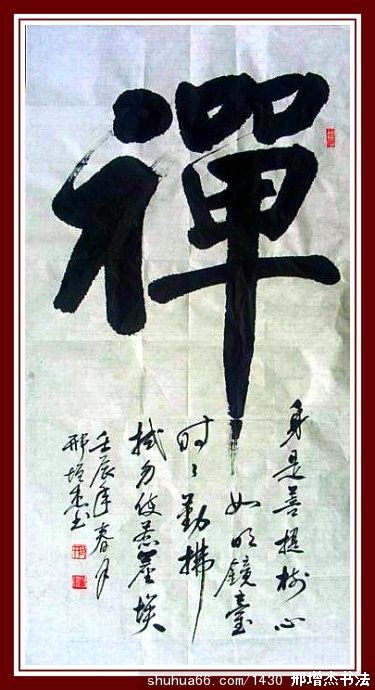 禪
身是菩提树心
如明鏡臺
时々勤拂
拭勿使惹塵埃
壬辰年春月
邢增杰书
shuhua66.com/1430 邢增杰书法